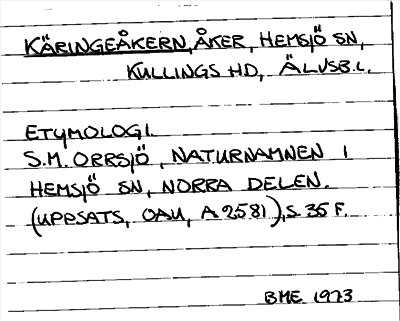 KÄRINGEÅKERN, ÅKER, HEMSJÖ SN,
KULLINGS HD, ÄLVSB. L.
ETYMOLOGI.
S.M. ORRSJÖ, NATURNAMNEN I
HEMSJÖ SN, NORRA DELEN.
(UPPSATS, OAU, A 2581), S. 35 F.
BME 1973